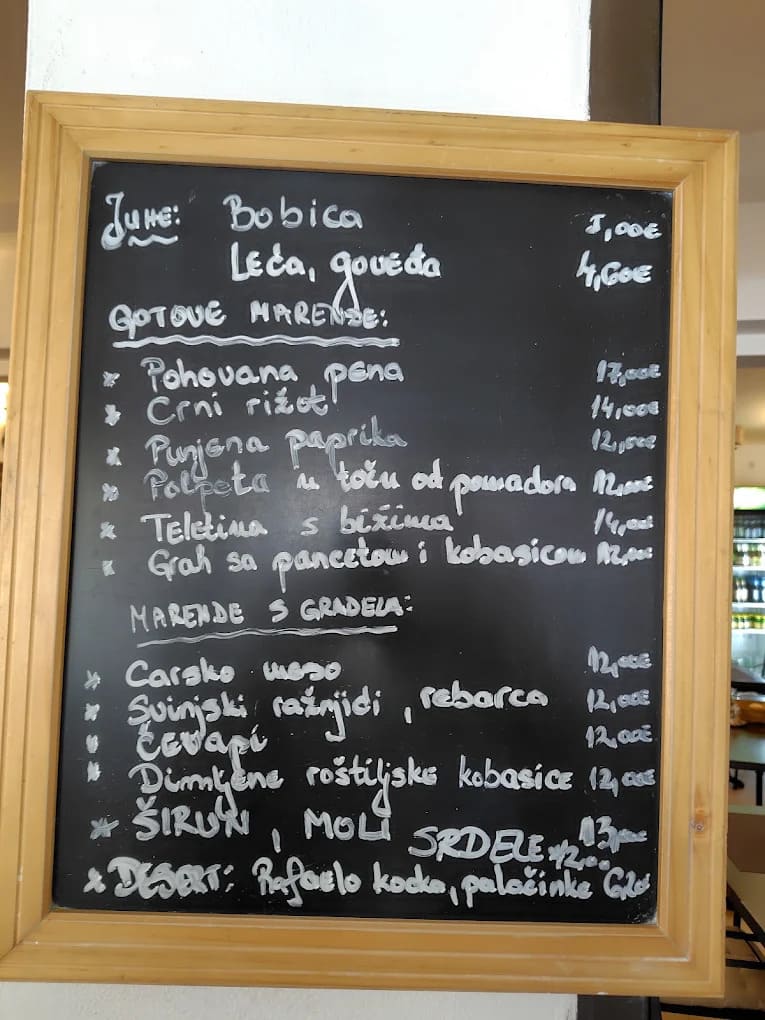 JUHE: Bobica 5,00€
Leća, goveđa 4,60€
GOTOVE MARENDE:
* Pohovana pena 17,00€
* Crni rižot 14,00€
* Punjena paprika 12,00€
* Polpeta u toću od pomadora 12,00€
* Teletina s bižima 14,00€
* Grah sa pancetom i kobasicom 12,00€
MARENDE S GRADELA:
* Carsko meso 12,00€
* Svinjski ražnjići, rebarca 12,00€
* Ćevapi 12,00€
* Dimljene roštiljske kobasice 12,00€
* ŠIRUN, MOLI 13,00€
SRDELE 12,00
* DESERT: Rafaelo kocka, palačinke